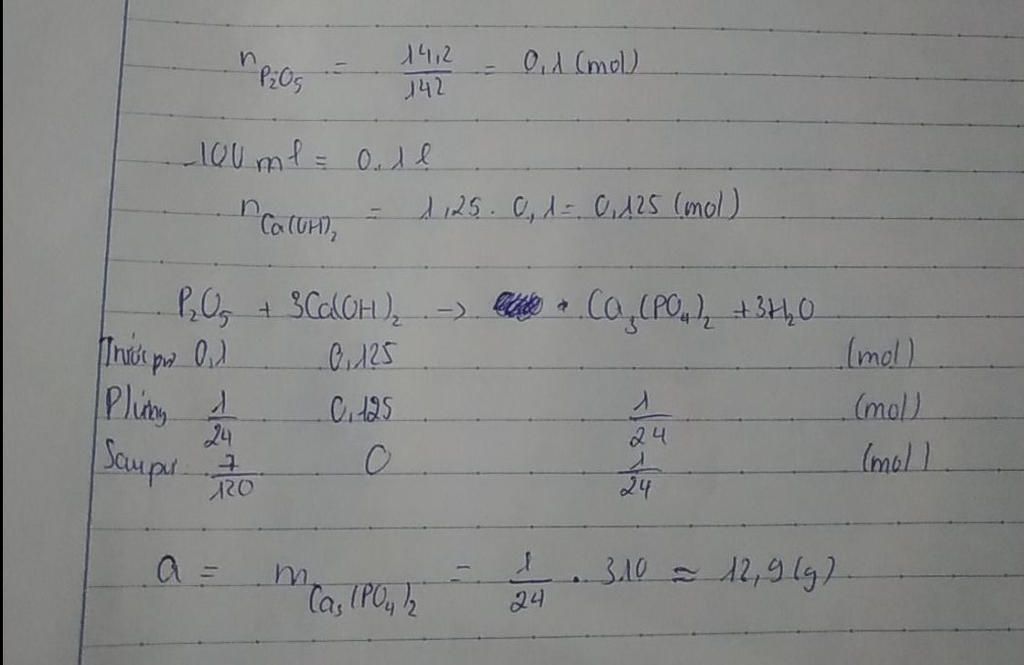 n P₂O₅ = 14,2/142 = 0,1 (mol)
100 ml = 0,1 l
n Ca(OH)₂ = 1,25 . 0,1 = 0,125 (mol)
P₂O₅ + 3Ca(OH)₂ -> Ca₃(PO₄)₂ + 3H₂O
Trước pư 0,1 0,125 (mol)
P/ứng 1/24 0,125 1/24 (mol)
Sau pư 7/120 0 1/24 (mol)
a = m Ca₃(PO₄)₂ = 1/24 . 310 ≈ 12,9 (g)